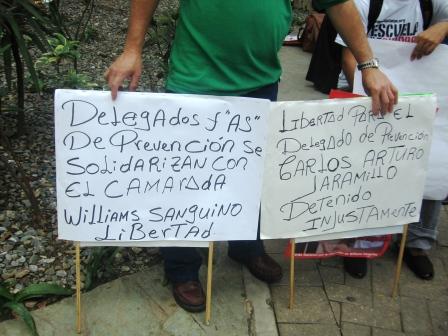 Delegados y "AS"
De Prevención se
Solidarizan con
El Camarada
Williams Sanguino
Libertad
Libertad Para El
Delegado de Prevención
Carlos Arturo
Jaramillo
Detenido
Injustamente
ESCUELA